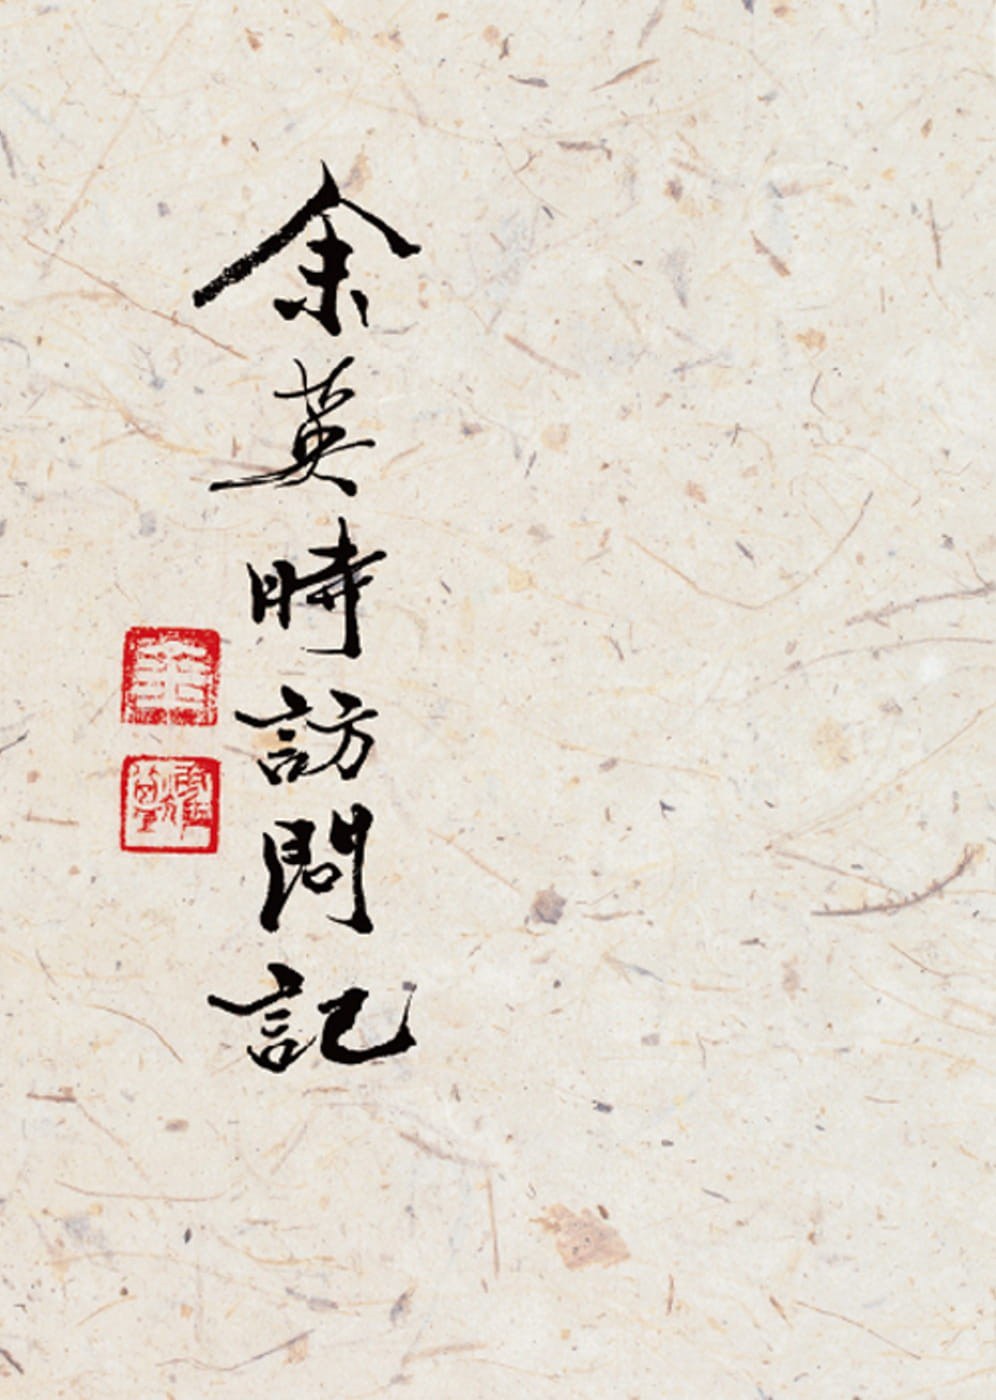 余英時訪問記